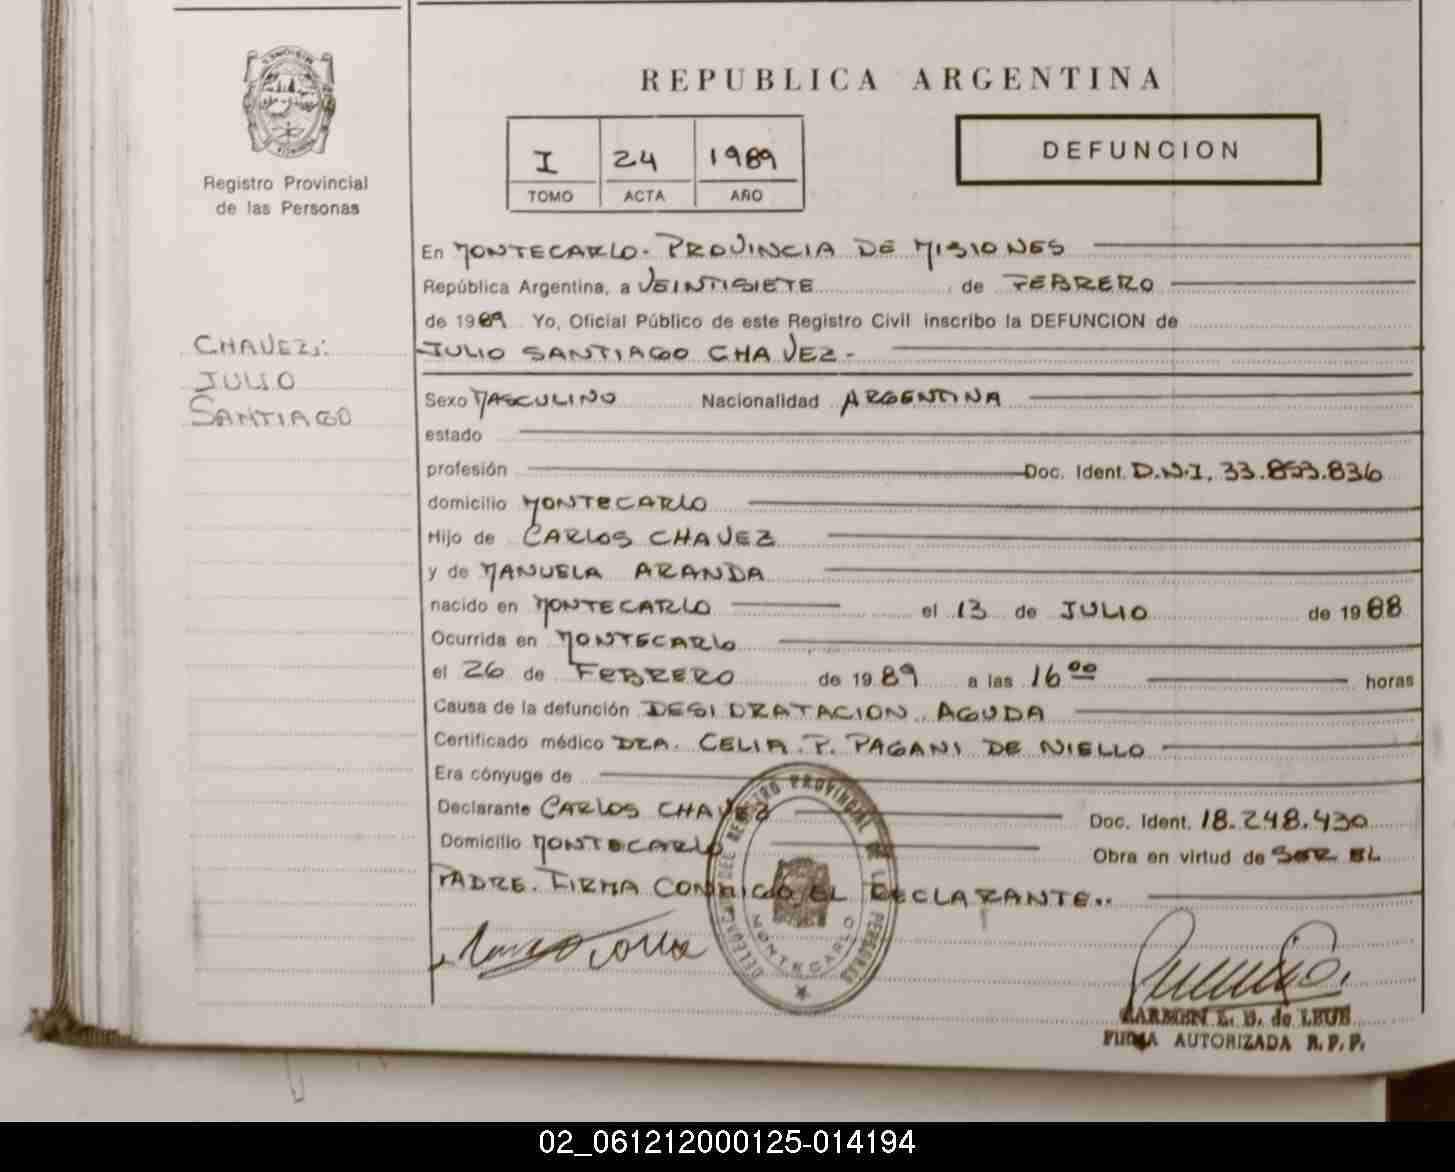 REPUBLICA ARGENTINA
I 24 1989
TOMO ACTA AÑO
DEFUNCION
Registro Provincial
de las Personas
CHAVEZ:
JULIO
SANTIAGO
En MONTECARLO. PROVINCIA DE MISIONES
República Argentina, a VEINTISIETE de FEBRERO
de 1989 Yo, Oficial Público de este Registro Civil inscribo la DEFUNCION de
JULIO SANTIAGO CHAVEZ.-
Sexo MASCULINO Nacionalidad ARGENTINA
estado
profesión Doc. Ident. D.N.I. 33.853.836
domicilio MONTECARLO
Hijo de CARLOS CHAVEZ
y de MANUELA ARANDA
nacido en MONTECARLO el 13 de JULIO de 1988
Ocurrida en MONTECARLO
el 26 de FEBRERO de 1989 a las 16 00 horas
Causa de la defunción DESIDRATACION AGUDA
Certificado médico DRA. CELIA. P. PAGANI DE NIELLO
Era cónyuge de
Declarante CARLOS CHAVEZ Doc. Ident. 18.248.430
Domicilio MONTECARLO Obra en virtud de SER EL
PADRE. FIRMA CONMIGO, EL DECLARANTE..
DELEGACION DEL REGISTRO PROVINCIAL DE LAS PERSONAS
MONTECARLO
CARMEN E. B. de LEUE
FIRMA AUTORIZADA R.P.P.
02_061212000125-014194